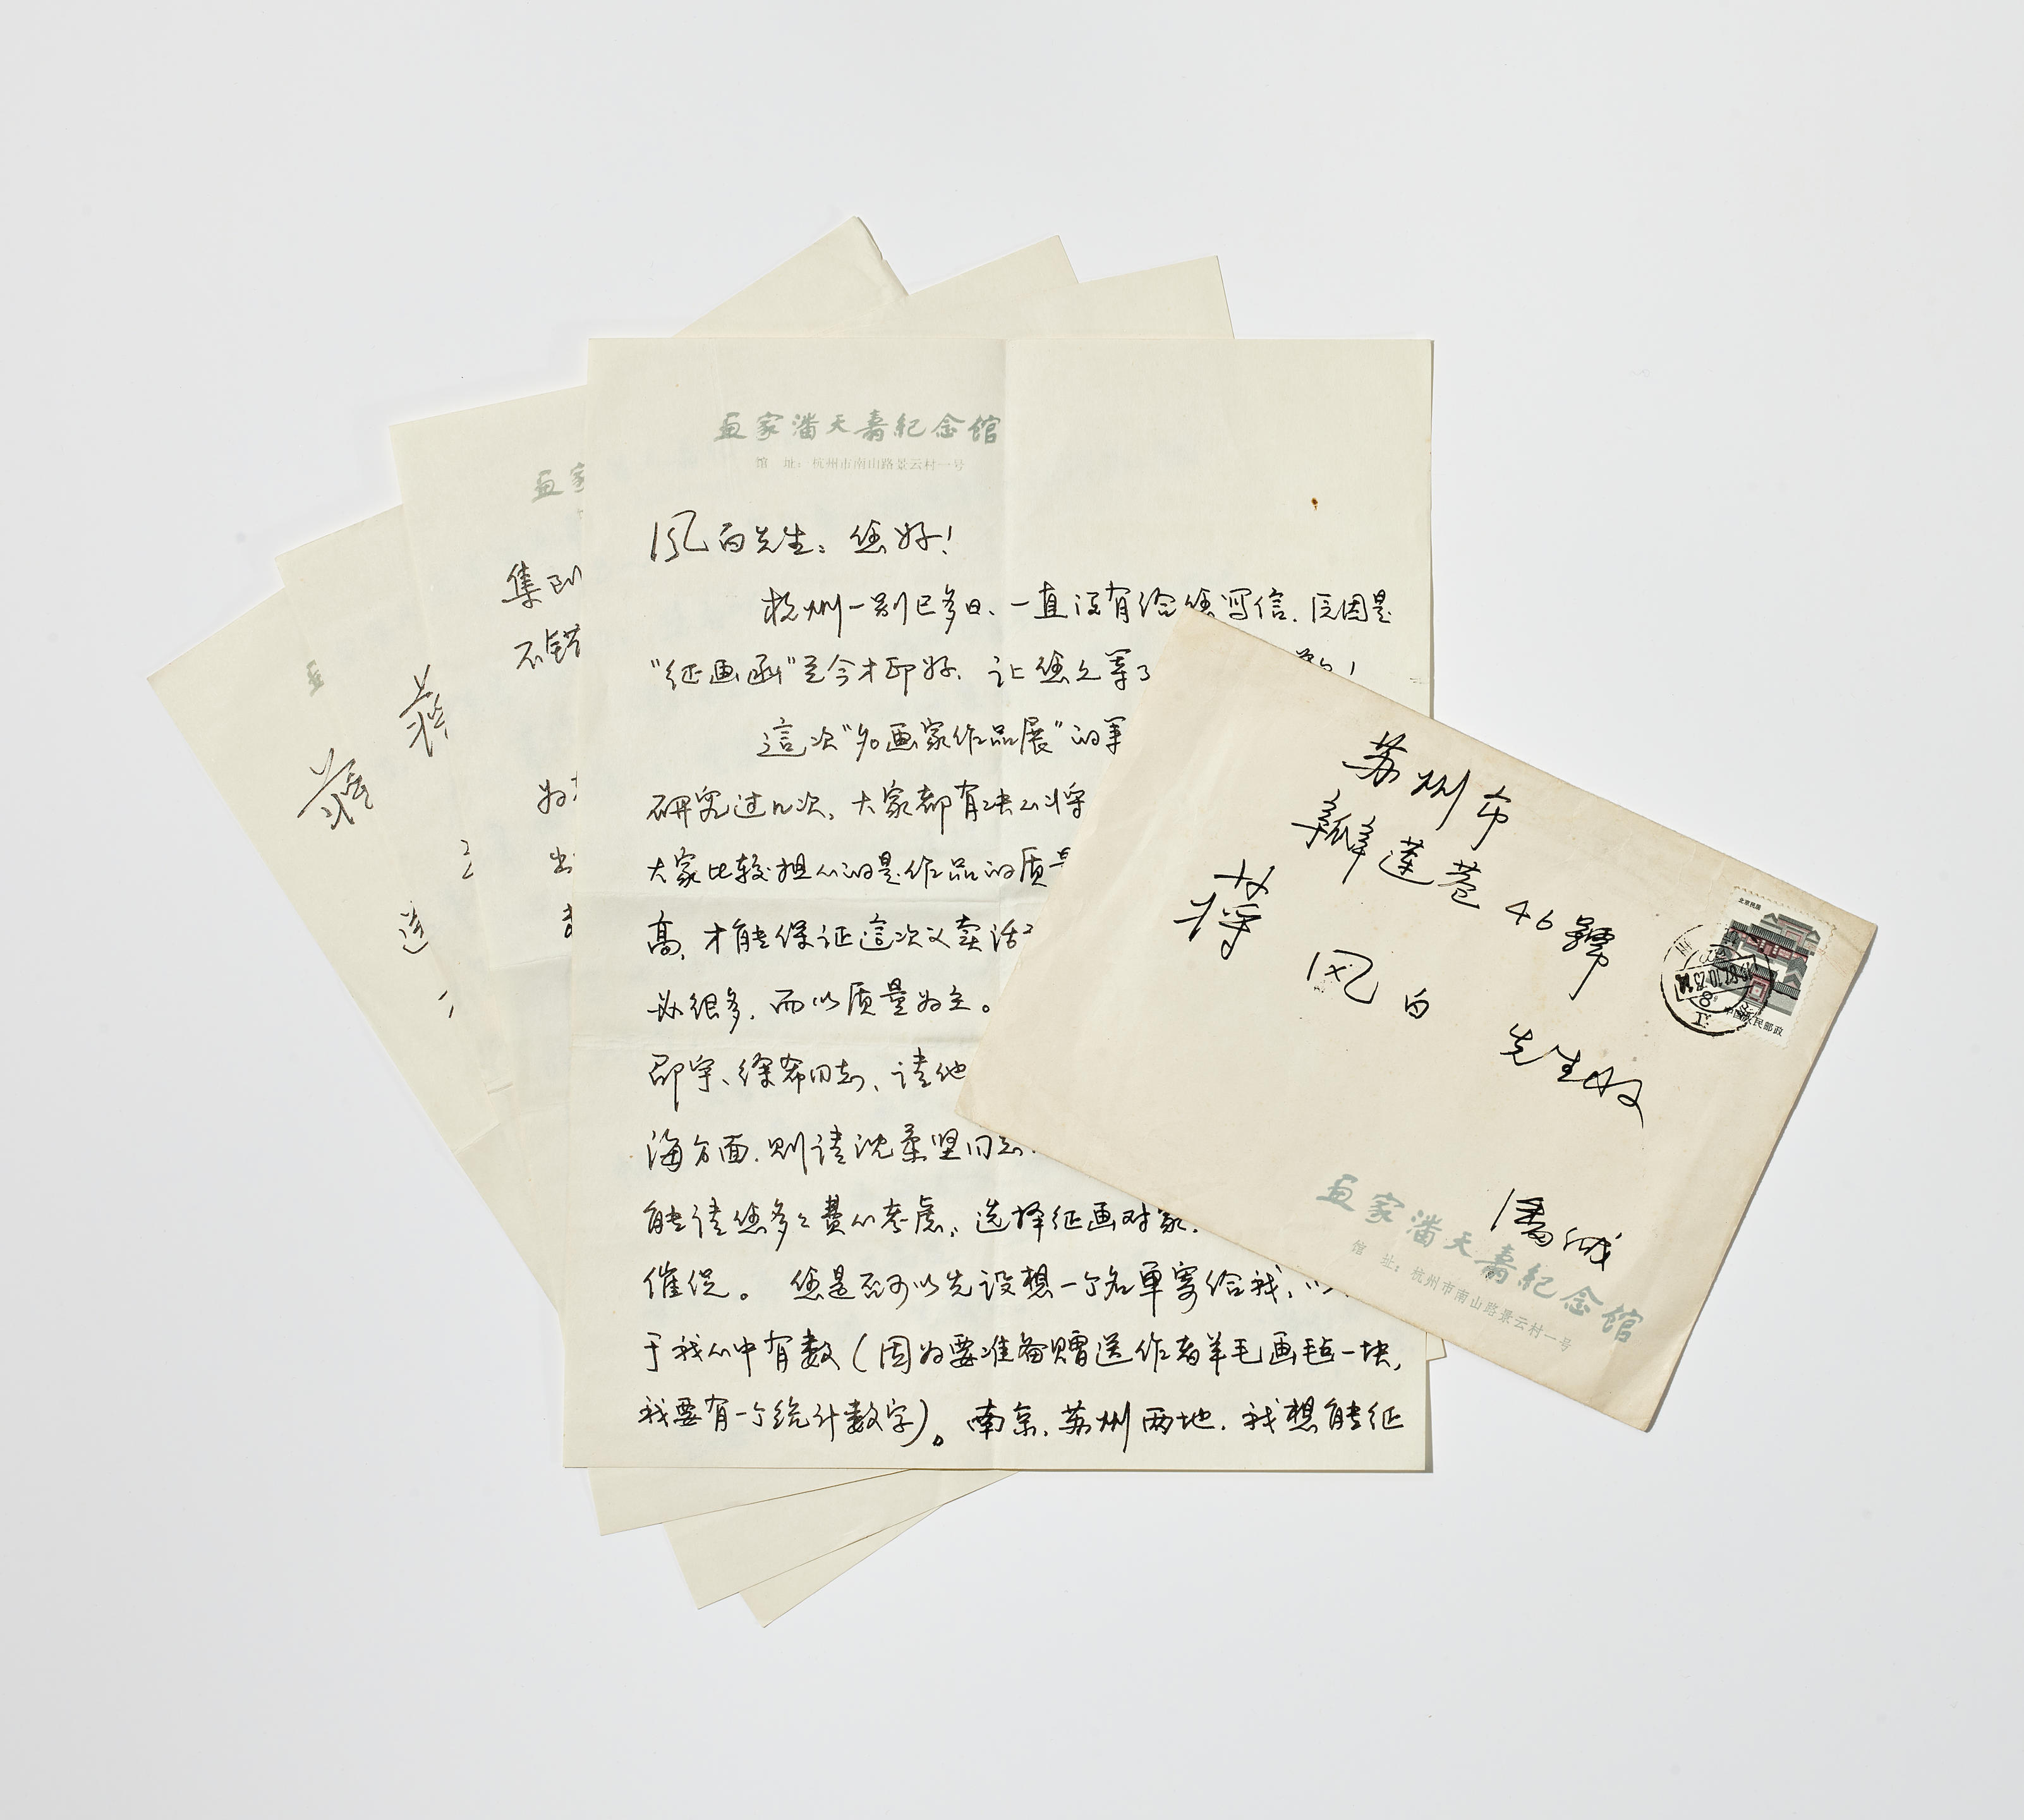 画家潘天寿纪念馆
馆 址：杭州市南山路景云村一号
风白先生：您好！
杭州一别已多日、一直没有给您写信．原因是
“征画函”至今才印好．让您久等了
這次“名画家作品展”的筹
研究过几次，大家都有决心将
大家比较担心的是作品的质量
高，才能保证這次义卖活
必很多，而以质量为主。
邵宇、徐希同志，请他
海方面．则请沈柔坚同志
能请您多多费心考虑，选择征画对象．
催促。 您是否可以先设想一个名单寄给我，以
于我心中有数（因为要准备赠送作者羊毛画毡一块，
我要有一个统计数字）。南京、苏州两地．我想能征
画家
集到
不错
蒋
蒋
送
苏州市
瓣莲巷46號
蒋风白 先生收
潘
画家潘天寿纪念馆
馆 址：杭州市南山路景云村一号
北京民居
中国人民邮政